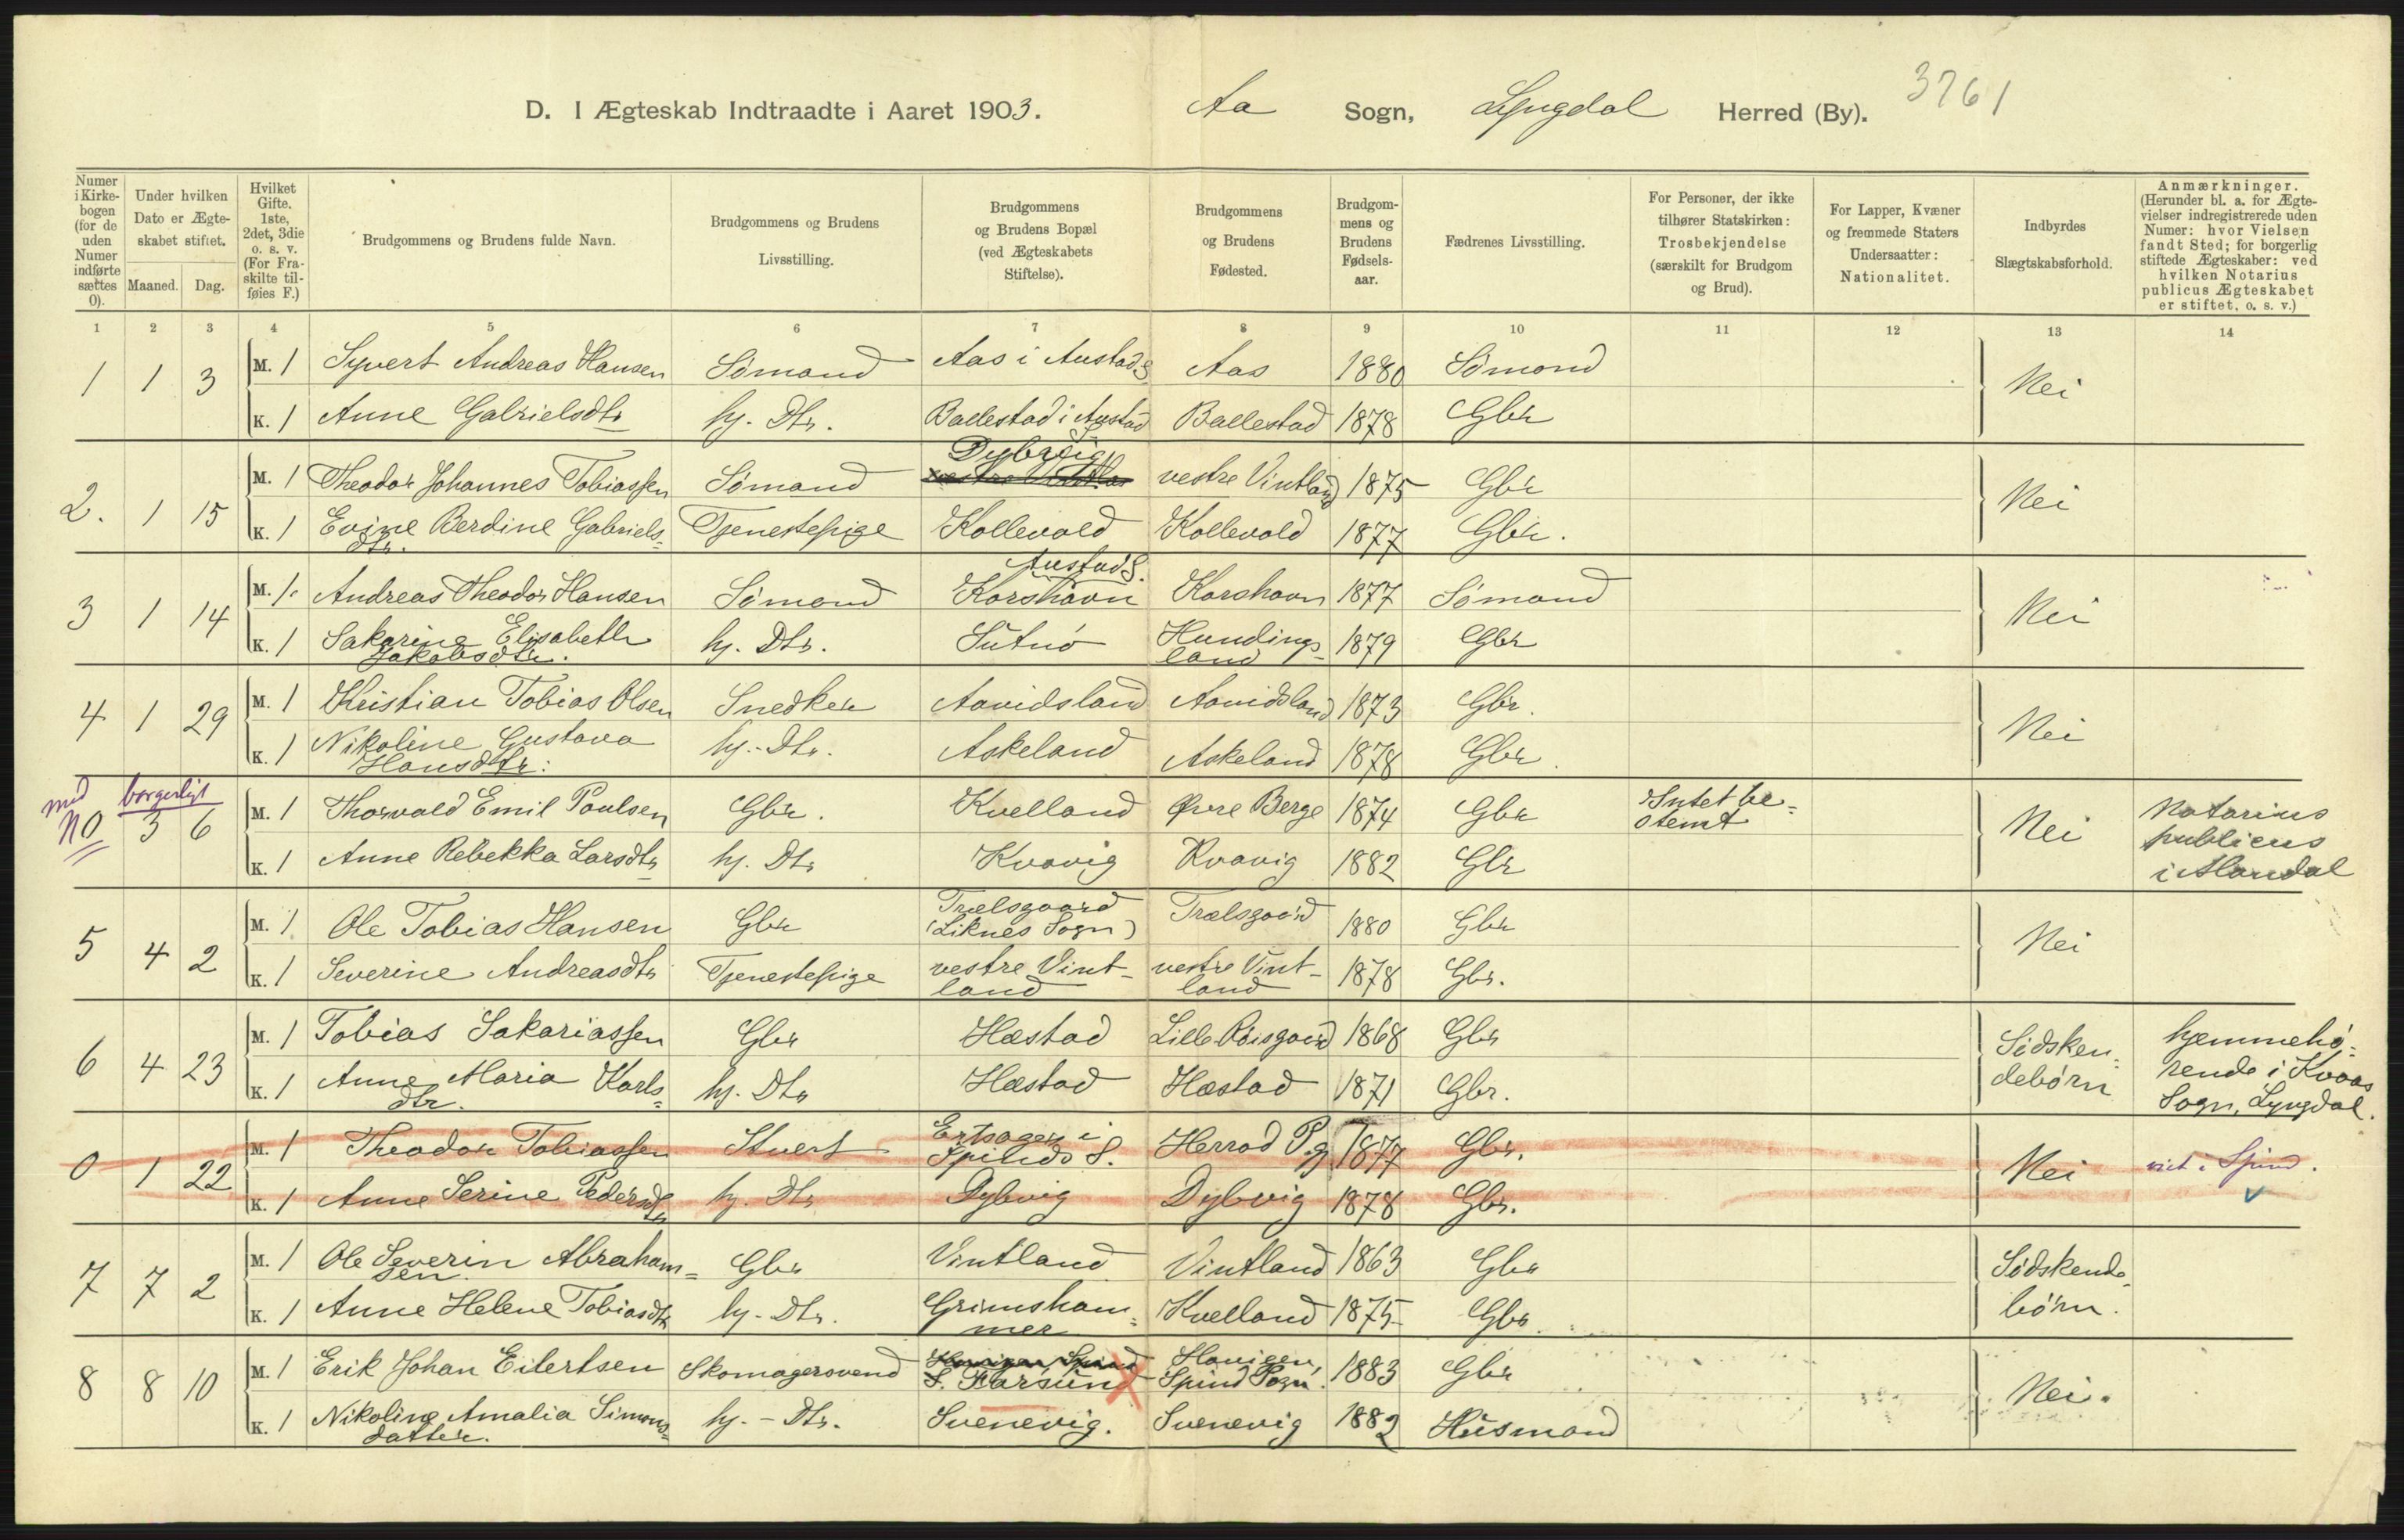 D. I Ægteskab Indtraadte i Aaret 1903. Aa Sogn, Lyngdal Herred (By). 3761
Numer i Kirkebogen (for de uden Numer indførte sættes 0). Under hvilken Dato er Ægteskabet stiftet. Maaned. Dag. Hvilket Gifte. 1ste, 2det, 3die o. s. v. (For Fraskilte tilføies F.) Brudgommens og Brudens fulde Navn. Brudgommens og Brudens Livsstilling. Brudgommens og Brudens Bopæl (ved Ægteskabets Stiftelse). Brudgommens og Brudens Fødested. Brudgommens og Brudens Fødselsaar. Fædrenes Livsstilling. For Personer, der ikke tilhører Statskirken: Trosbekjendelse (særskilt for Brudgom og Brud). For Lapper, Kvæner og fremmede Staters Undersaatter: Nationalitet. Indbyrdes Slægtskabsforhold. Anmærkninger. (Herunder bl. a. for Ægtevielser indregistrerede uden Numer: hvor Vielsen fandt Sted; for borgerlig stiftede Ægteskaber: ved hvilken Notarius publicus Ægteskabet er stiftet, o. s. v.)
1 2 3 4 5 6 7 8 9 10 11 12 13 14
1 1 3 M. 1 Syvert Andreas Hansen Sømand Aas i Austad S. Aas 1880 Sømand Nei
K. 1 Anne Gabrielsdtr hj. Dtr. Ballestad i Austad S. Ballestad 1878 Gbr
2. 1 15 M. 1 Theodor Johannes Tobiassen Sømand Dybvig vestre Vintland 1875 Gbr Nei
K. 1 Evine Berdine Gabriels=
dtr. Tjenestepige Kollevold Kollevold 1877 Gbr.
3 1 14 M. 1. Andreas Theodor Hansen Sømand Austad S.
Korshavn Korshavn 1877 Sømand Nei
K. 1 Sakarina Elisabeth
Jakobsdtr. hj. Dtr. Sutnø Hundings-
land 1879 Gbr
4 1 29 M. 1 Kristian Tobias Olsen Snedker Aavidsland Aavidsland 1873 Gbr. Nei
K. 1 Nikoline Gustava
Hansdtr: hj.-Dtr. Askeland Askeland 1878 Gbr.
med borgerligt
NO 3 6 M. 1 Thorvald Emil Poulsen Gbr. Kvelland Øvre Berge 1874 Gbr Intet be=
stemt Nei Notarius
publicus
i Mandal
K. 1 Anne Rebekka Larsdtr hj. Dtr Kvavig Kvavig 1882 Gbr
5 4 2 M. 1 Ole Tobias Hansen Gbr Trælsgaard
(Liknes Sogn) Trælsgaard 1880 Gbr Nei
K. 1 Severine Andreasdtr Tjenestepige vestre Vint-
land vestre Vint-
land 1878 Gbr.
6 4 23 M. 1 Tobias Sakariassen Gbr Hæstad Lille Røisgaard 1868 Gbr Sødsken=
debørn hjemmehø=
rende i Kvaas
Sogn, Lyngdal.
K. 1 Anne Maria Karls=
dtr. hj. Dtr Hæstad Hæstad 1871 Gbr.
0 1 22 M. 1 Theodor Tobiassen Stuert i
Spinds S. Herrad Pgj 1877 Gbr. Nei viet i Spind.
K. 1 Anne Serine Pedersdtr hj. Dtr Dybvig Dybvig 1878 Gbr.
7 7 2 M. 1 Ole Severin Abraham=
sen. Gbr Vintland Vintland 1863 Gbr Sødskende-
børn.
K. 1 Anne Helene Tobiasdtr hj.-Dtr. Grimsham=
mer Kvelland 1875 Gbr.
8 8 10 M. 1 Erik Johan Eilertsen Skomagersvend Farsund Havigen,
Spind Sogn. 1883 Gbr Nei.
K. 1 Nikoline Amalia Simons=
datter. hj.-Dtr. Svenevig. Svenevig 1882 Husmand